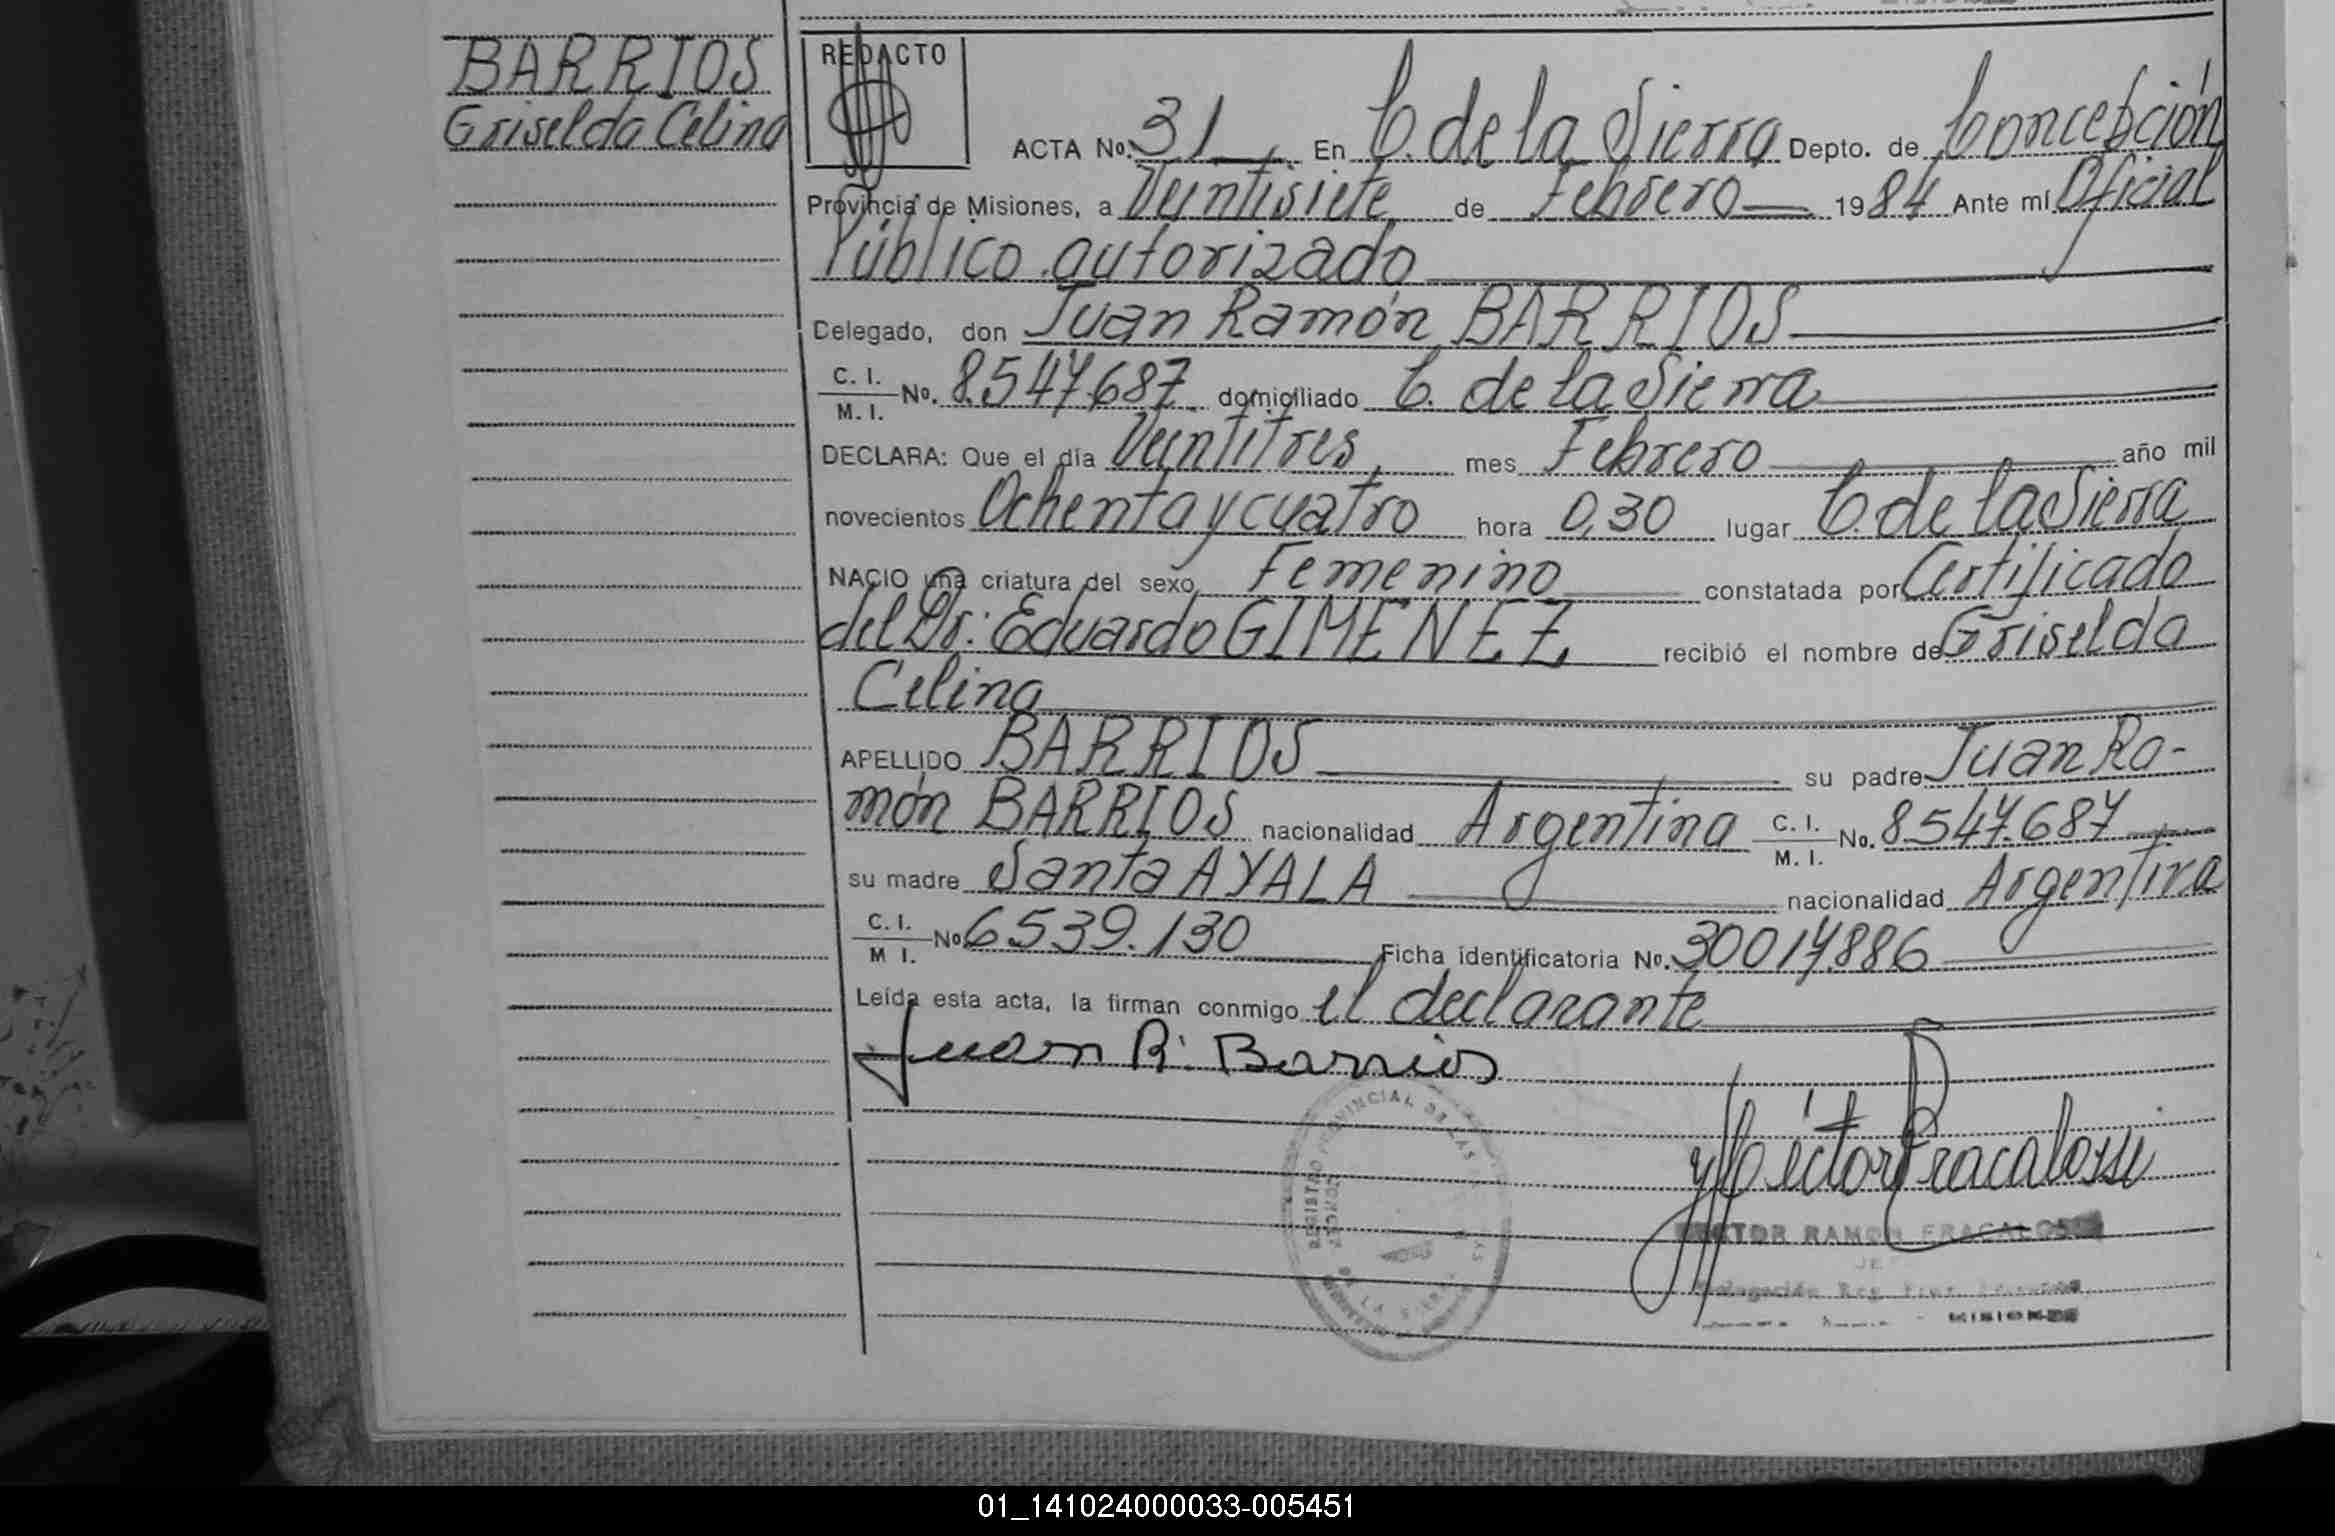 BARRIOS
Griselda Celina
REDACTO
ACTA No. 31 En C. de la Sierra Depto. de Concepción
Provincia de Misiones, a Veintisiete de Febrero 1984 Ante mí Oficial
Público autorizado
Delegado, don Juan Ramón BARRIOS
C. I. / M. I. No. 8.547.687 domiciliado C. de la Sierra
DECLARA: Que el día Veintitres mes Febrero año mil
novecientos Ochenta y cuatro hora 0,30 lugar C. de la Sierra
NACIO una criatura del sexo Femenino constatada por Certificado
del Dr: Eduardo GIMENEZ recibió el nombre de Griselda
Celina
APELLIDO BARRIOS su padre Juan Ra-
món BARRIOS nacionalidad Argentina C. I. / M. I. No. 8547.687
su madre Santa AYALA nacionalidad Argentina
C. I. / M I. No 6539.130 Ficha identificatoria No. 30017886
Leída esta acta, la firman conmigo el declarante
Juan R. Barrios
Héctor R Fracalossi
REGISTRO PROVINCIAL DE LAS
DE LA SIERRA
HECTOR RAMON FRACALOSSI
JEFE
Delegación Reg. Prov.
MISIONES
01_141024000033-005451